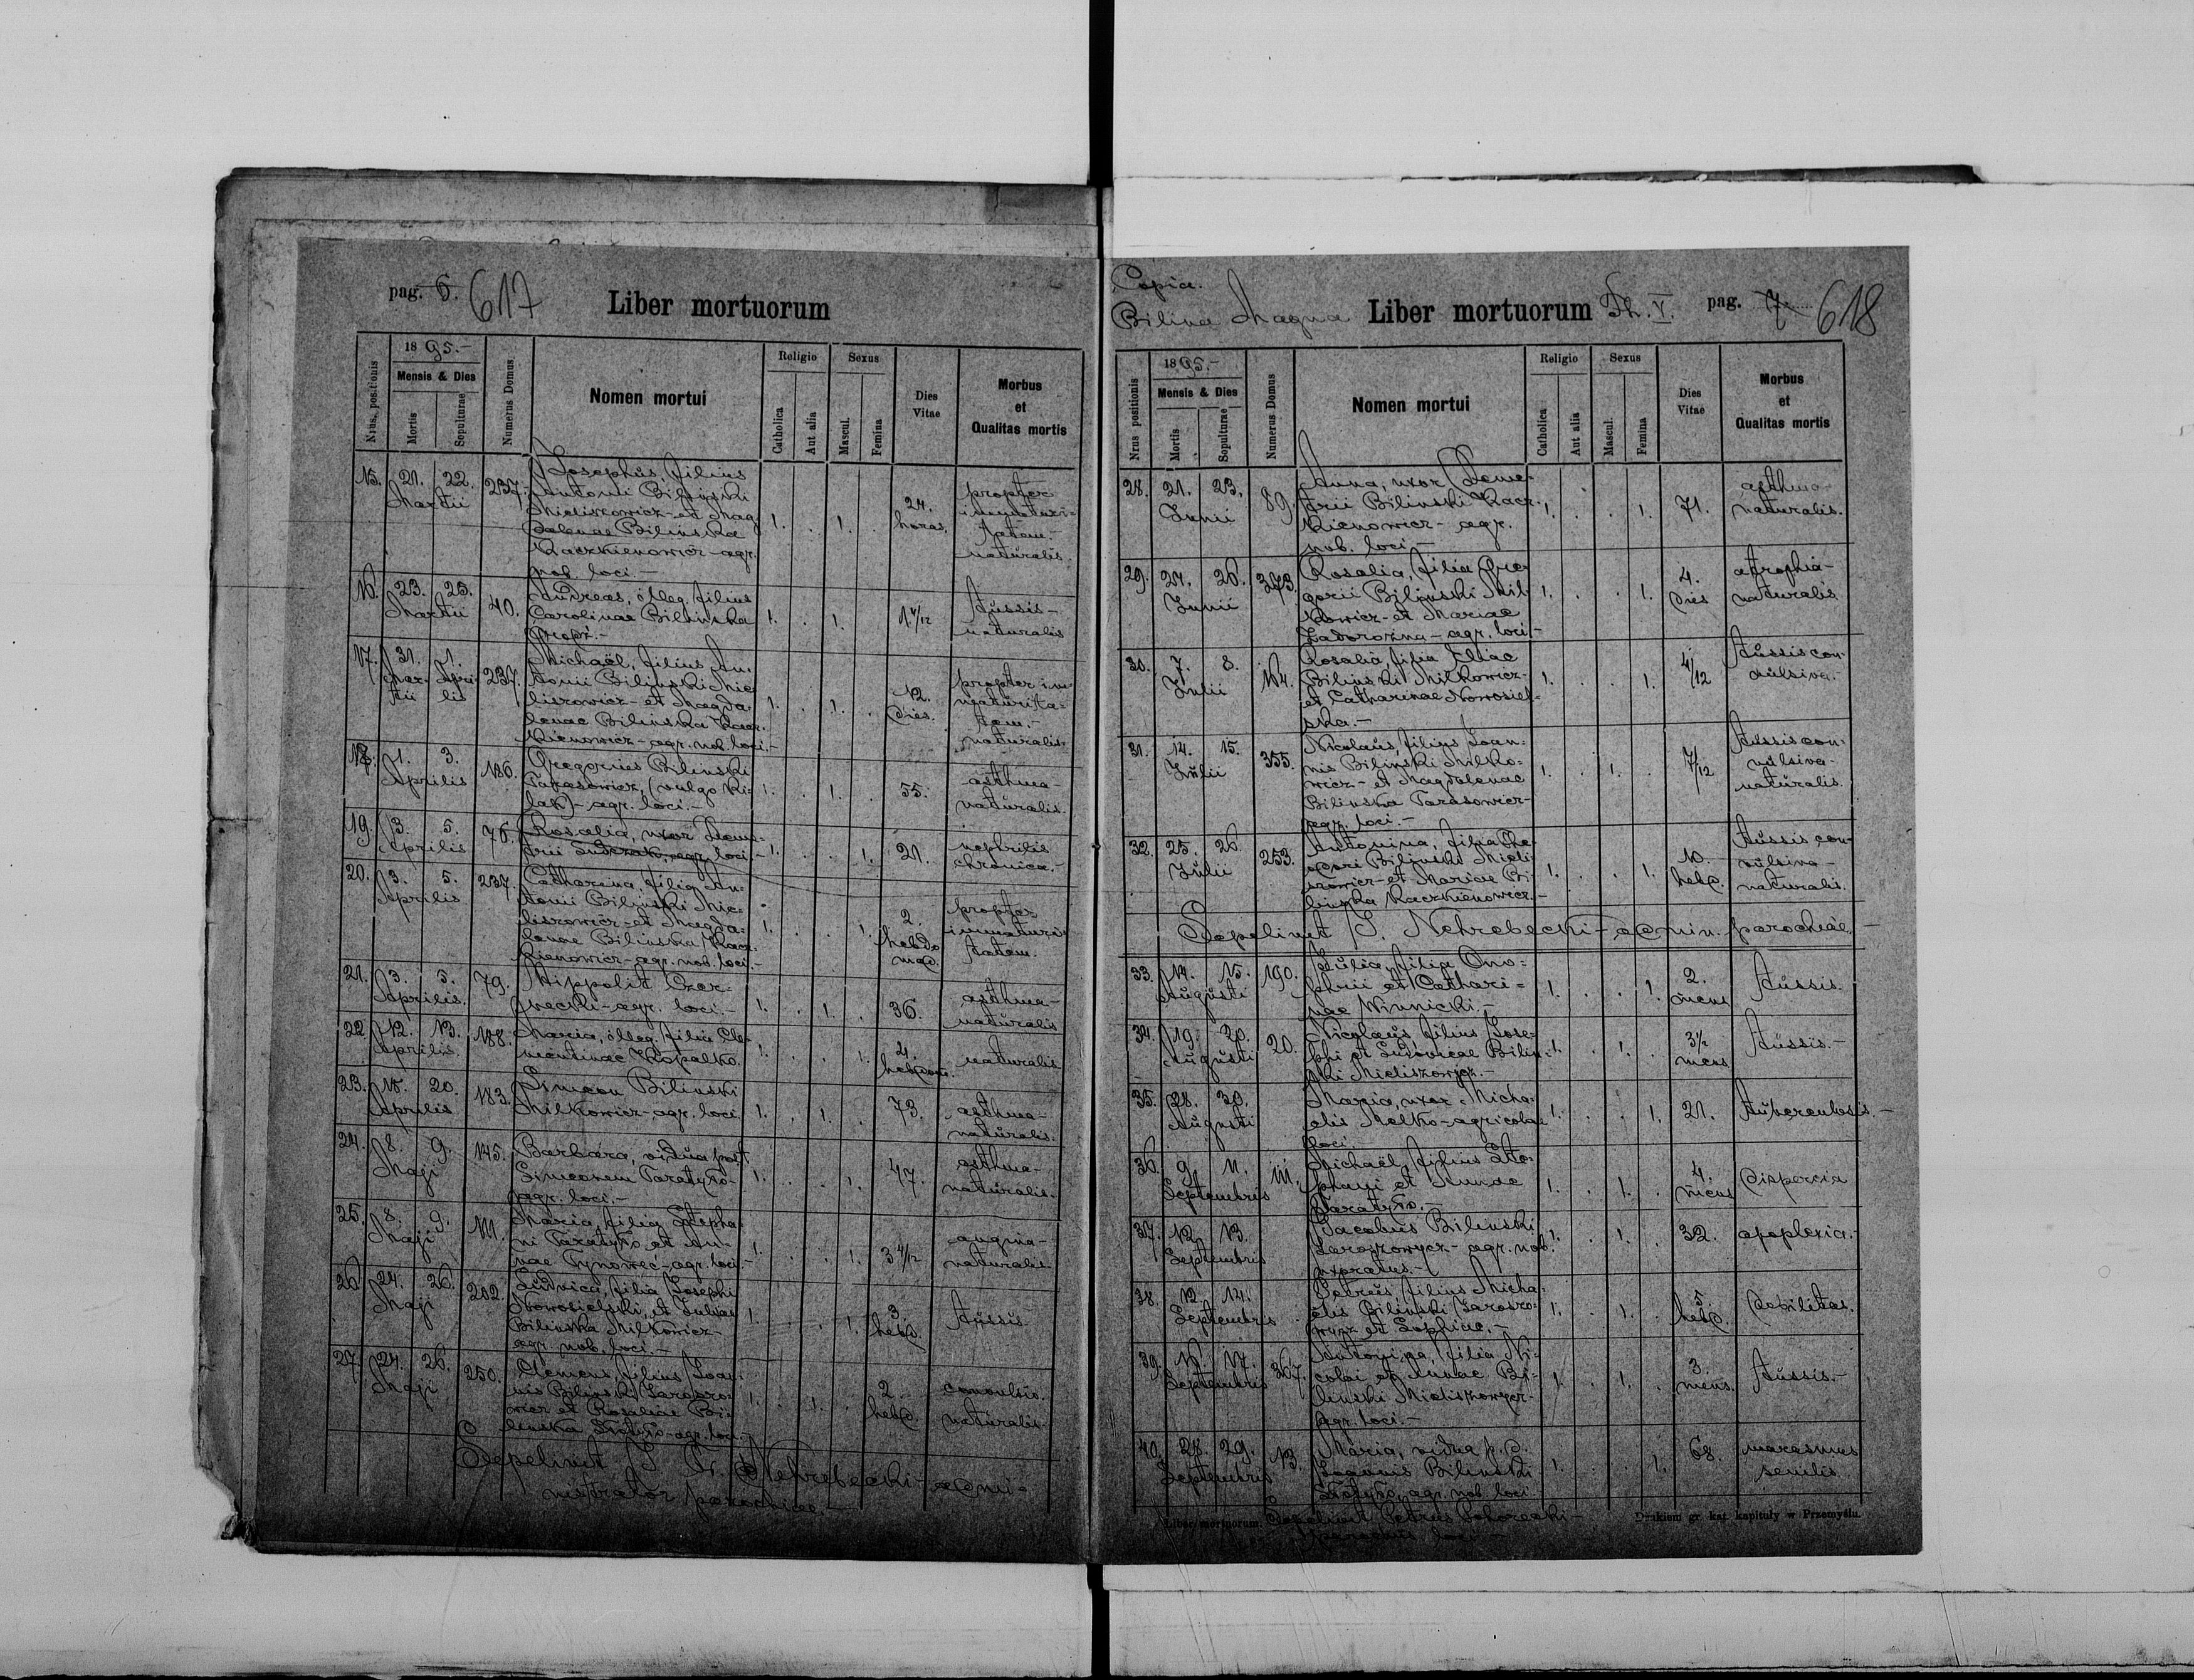 pag. 6. 617
Liber mortuorum
Nrus. positionis
1895.-
Mensis & Dies
Mortis
Sepulturae
Numerus Domus
Nomen mortui
Religio
Catholica
Aut alia
Sexus
Mascul.
Femina
Dies
Vitae
Morbus
et
Qualitas mortis
15. 21. 22. 237. Josephus, filius
Martii Antonii Bilinski
Mieliszowicz - et Mag-
dalenae Bilinska
Kaczkienowicz - agr.
nob. loci. -
1. . 1. .
24.
horas.
propter
immaturi-
tatem. -
naturalis.
16. 23. 25. 40. Andreas, illeg. filius
Martii Carolinae Bilinska
1. . 1. .
1 4/12
tussis -
naturalis
17. 31. 1. 237. Michaël, filius An-
Mar- Apri- tonii Bilinski Mie-
tii lis liszowicz - et Magda-
lenae Bilinska Kacz-
kienowicz - agr. nob. loci. -
1. . 1. .
12.
dies.
propter im-
maturita-
tem. -
naturalis.
18. 1. 3. 186. Gregorius Bilinski
Aprilis Tarasowicz, (vulgo Ki-
lak) - agr. loci. -
1. . 1. .
55.
asthma -
naturalis.
19. 3. 5. 76. Rosalia, uxor Deme-
Aprilis trii agr. loci. -
1. . . 1.
21.
nephritis
chronica. -
20. 3. 5. 237. Catharina, filia An-
Aprilis tonii Bilinski Mie-
liszowicz - et Magda-
lenae Bilinska Kacz-
kienowicz - agr. nob. loci. -
1. . . 1.
2.
hebdo
mad.
propter
immaturi-
tatem.
21. 3. 5. 79. Hippolit Czer-
Aprilis. necki - agr. loci. -
1. . 1. .
36.
asthma -
naturalis
22. 12. 13. 188. Maria, illeg. filia Cle-
Aprilis. mentinae Kopalko.
1. . . 1.
hebdom.
naturalis
23. 18. 20. 183. Simeon Bilinski
Aprilis Milkowicz - agr. loci
1. . 1. .
73.
asthma -
naturalis.
24. 8. 9. 145. Barbara, vidua post
Maji Simeonem Taratyko -
agr. loci. -
1. . . 1.
47.
asthma -
naturalis.
25. 8. 9. 111. Maria, filia Stepha-
Maji ni Taratyko, et An-
nae Tynowec - agr. loci. -
1. . . 1.
3 4/12
angina -
naturalis.
26. 24. 26. 202. Ludvica, filia Josephi
Maji Nowosielski, et Juliae
Bilinska Milkowicz -
agr. nob. loci. -
1. . . 1.
3.
hebd.
tussis.
27. 24. 26. 250. Clemens, filius Joan-
Maji nis Bilinski Jaroszo-
wicz et Rosaliae Bi-
linska agr. loci. -
1. . 1. .
2.
hebd.
convulsio.
naturalis.
Sepelivit J. N. Nehrebecki - admi-
nistrator parochiae. -
Copia.
Bilina Magna
Liber mortuorum Th. V. pag. 7. 618
Nrus positionis
1895.-
Mensis & Dies
Mortis
Sepulturae
Numerus Domus
Nomen mortui
Religio
Catholica
Aut alia
Sexus
Mascul.
Femina
Dies
Vitae
Morbus
et
Qualitas mortis
28. 21. 23. 89. Anna, uxor Deme-
Junii trii Bilinski Kacz-
kienowicz - agr.
nob. loci -
1. . . 1.
71.
asthma -
naturalis.
29. 24. 26. 373. Rosalia, filia Gre-
Junii gorii Bilinski Mil-
kowicz - et Mariae
Zadorozna - agr. loci -
1. . . 1.
4.
dies
atrophia -
naturalis.
30. 7. 8. 164. Rosalia, filia Eliae
Julii Bilinski Milkowicz -
et Catharinae Nowosiel-
ska. -
1. . . 1.
4/12
tussis con-
vulsiva. -
31. 14. 15. 355. Nicolaus, filius Joan-
Julii nis Bilinski Milko-
wicz - et Magdalenae
Bilinska Tarasowicz -
agr. loci. -
1. . 1. .
7/12
tussis con-
vulsiva -
naturalis.
32. 25. 26. 253. Antonina, filia Gre-
Julii gorii Bilinski Mieli-
szowicz - et Mariae Bi-
linska Kaczkienowicz. -
1. . . 1.
10.
hebd.
tussis con-
vulsiva -
naturalis.
Sepelivit J. Nehrebecki - admin. parochiae. -
33. 14. 15. 190. Julia, filia Ono-
Augusti phrii et Cathari-
nae Winnicki. -
1. . . 1.
2.
mens
tussis.
34. 19. 20. 20. Nicolaus, filius Jose-
Augusti phi et Ludovicae Bilin-
ski Mieliszowycz. -
1. . 1. .
3 1/2
mens
tussis. -
35. 28. 30. Maria, uxor Micha-
Augusti elis Melko - agricolae
loci.
1. . . 1.
21.
tuberculosis. -
36. 9. 11. 111. Michaël, filius Ste-
Septembris phani et Annae
Taratyko. -
1. . 1. .
4.
mens
dispercia
37. 12. 13. Jacobus Bilinski
Septembris Jaroszowycz - agr. nob.
uxoratus. -
1. . 1. .
32.
apoplexia. -
38. 12. 14. Petrus, filius Micha-
Septembris elis Bilinski Jaroszo-
wycz et Sophiae. -
1. . 1. .
5.
hebd.
debilitas.
39. 16. 17. 367. Antonina, filia Ni-
Septembris colai et Annae Bi-
linski Mieliszowycz -
agr. loci. -
1. . 1. .
3.
mens.
tussis. -
40. 28. 29. 13. Maria, vidua p. d.
Septembris Joannis Bilinski
agr. nob. loci
1. . . 1.
68.
marasmus
senilis.
Liber mortuorum. Sepelivit Petrus
parochus loci. -
Drukiem gr. kat. kapituły w Przemyślu.